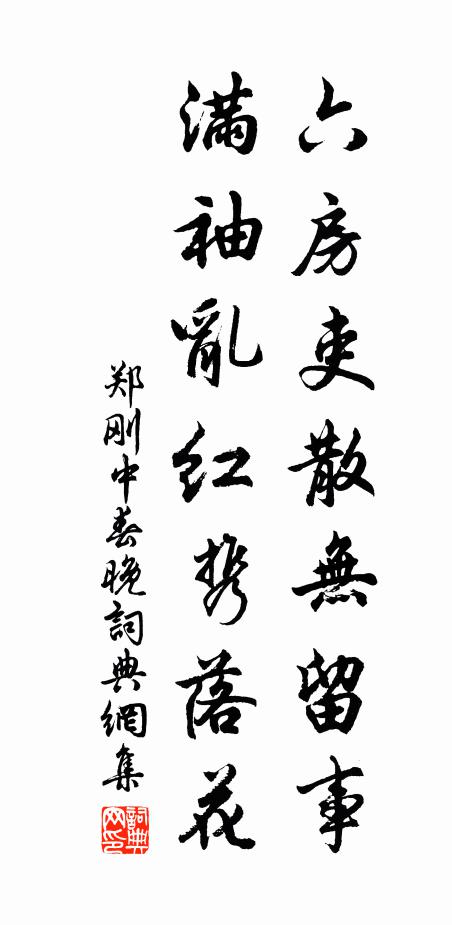 六房吏散無留事
滿袖亂紅携落花
郑刚中春晚詞典網集
詞典網印